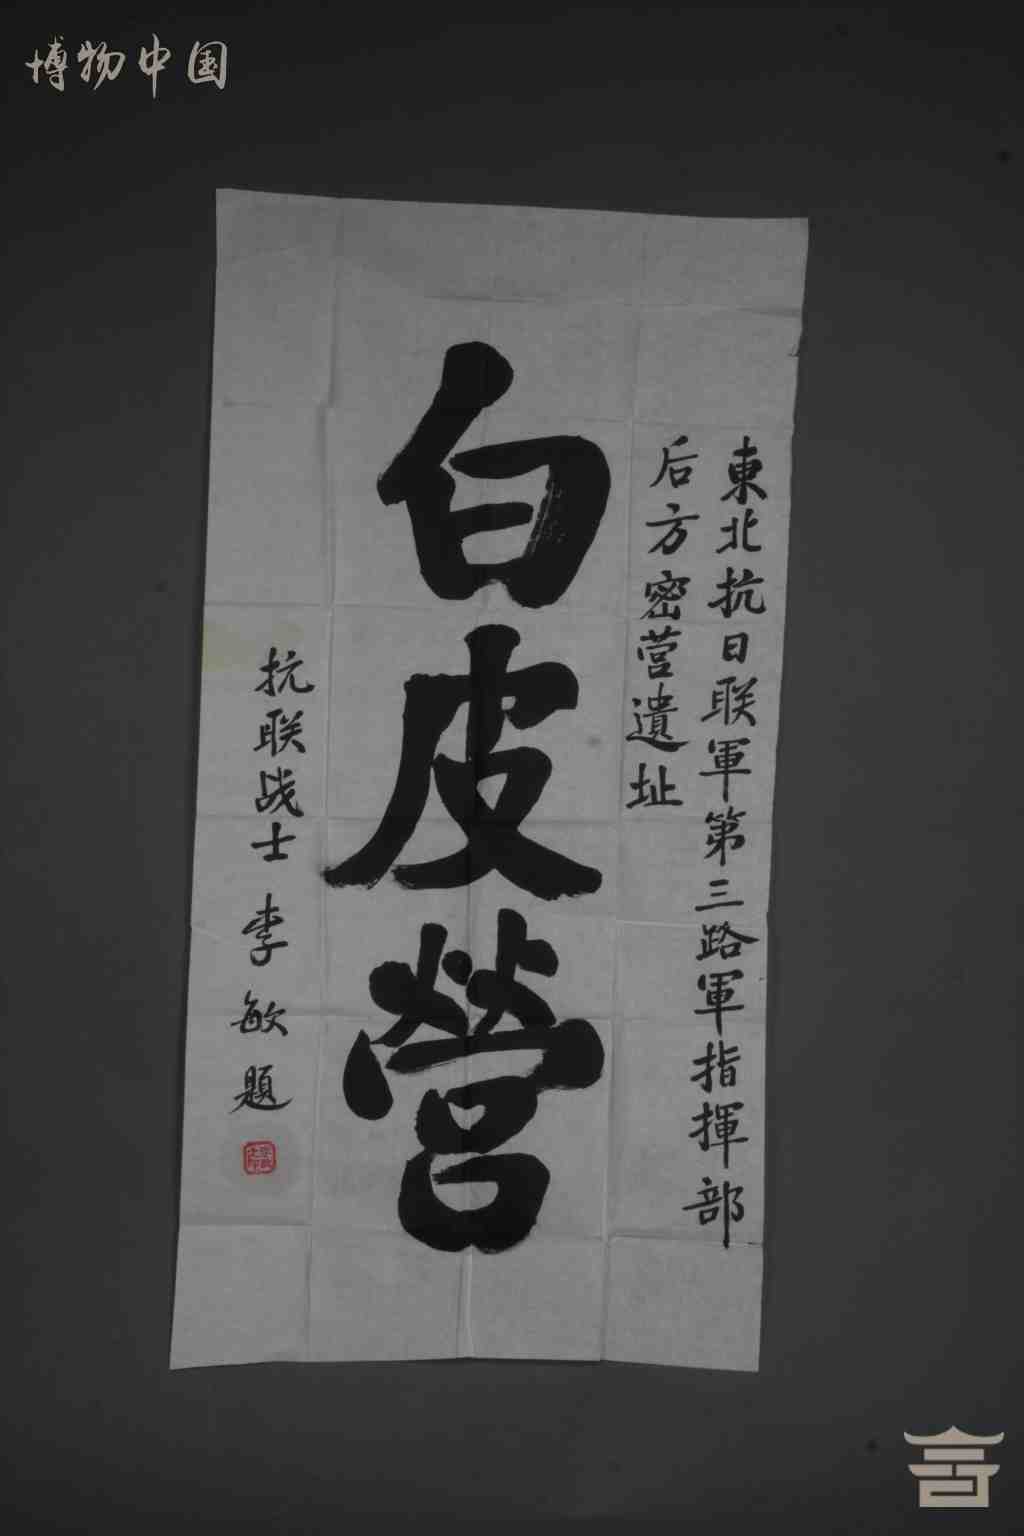 博物中国
東北抗日联軍第三路軍指揮部
后方密营遺址
白皮營
抗联战士 李敏題